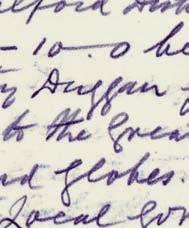 10.0 be
Duggan
to the Grea
nd Globes.
Local Gov